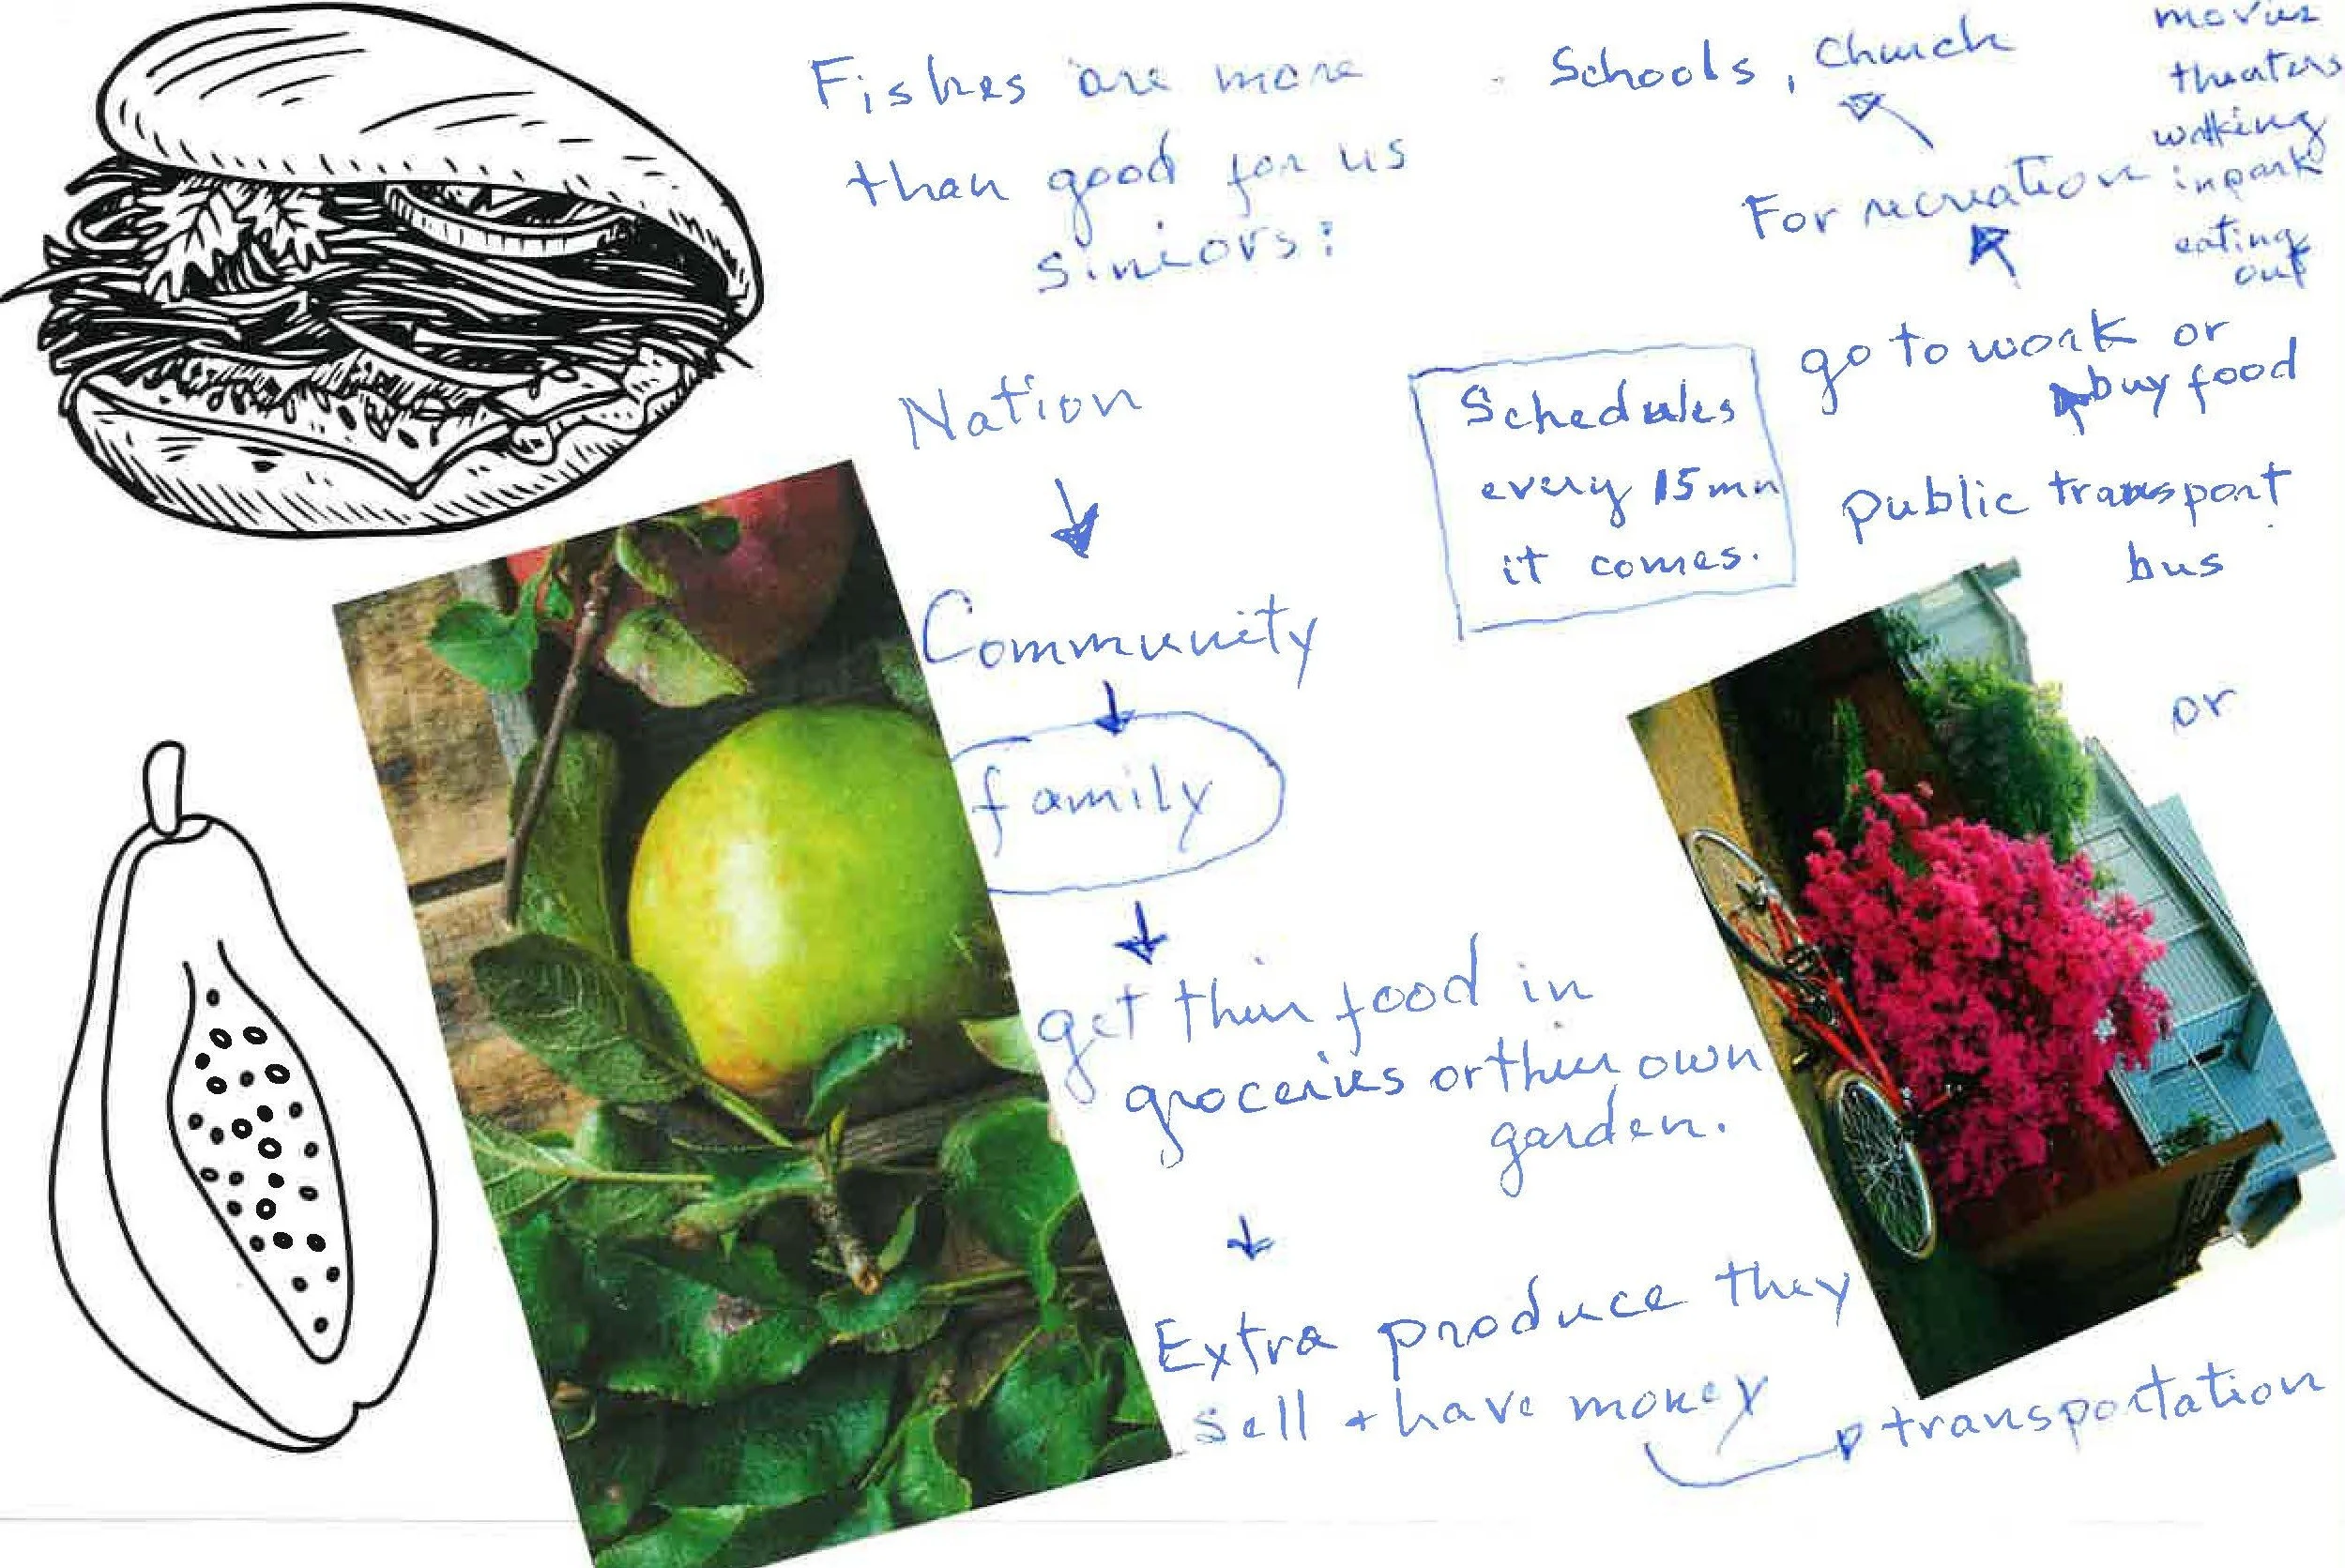 Fishes are more
than good for us
siniors:
Nation
Community
family
get their food in
groceries or their own
garden.
Extra produce they
sell + have money
transportation
or
public transport
bus
Schedules
every 15mn
it comes.
go to work or
buy food
For recreation
movies
theaters
walking
in park
eating
out
Schools, Church